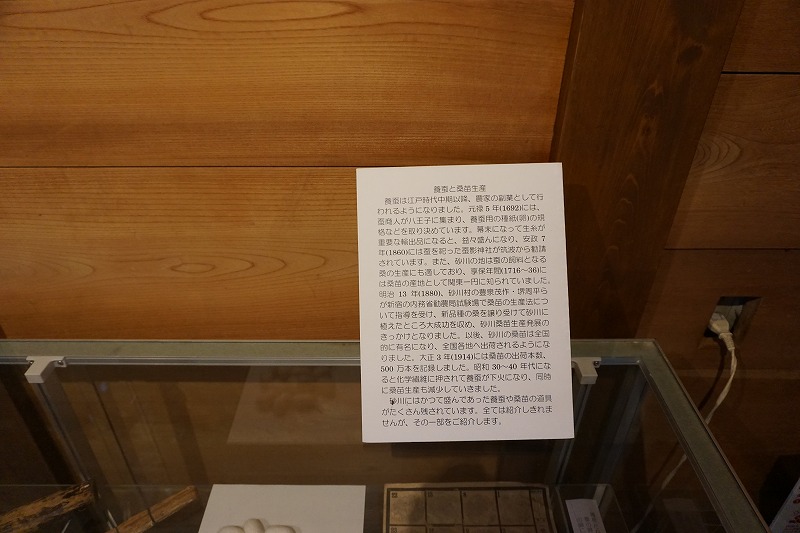 養蚕と桑苗生産
養蚕は江戸時代中期以降、農家の副業として行
われるようになりました。元禄5年(1692)には、
蚕商人が八王子に集まり、養蚕用の種紙(卵)の規
格などを取り決めています。幕末になって生糸が
重要な輸出品になると、益々盛んになり、安政7
年(1860)には蚕を祀った蚕影神社が筑波から勧請
されています。また、砂川の地は蚕の飼料となる
桑の生産にも適しており、享保年間(1716~36)に
は桑苗の産地として関東一円に知られていました。
明治13年(1880)、砂川村の豊泉茂作・堺周平ら
が新宿の内務省勧農局試験場で桑苗の生産法につ
いて指導を受け、新品種の桑を譲り受けて砂川に
植えたところ大成功を収め、砂川桑苗生産発展の
きっかけとなりました。以後、砂川の桑苗は全国
的に有名になり、全国各地へ出荷されるようにな
りました。大正3年(1914)には桑苗の出荷本数、
500万本を記録しました。昭和30~40年代にな
ると化学繊維に押されて養蚕が下火になり、同時
に桑苗生産も減少していきました。
砂川にはかつて盛んであった養蚕や桑苗の道具
がたくさん残されています。全ては紹介しきれ
ませんが、その一部をご紹介します。